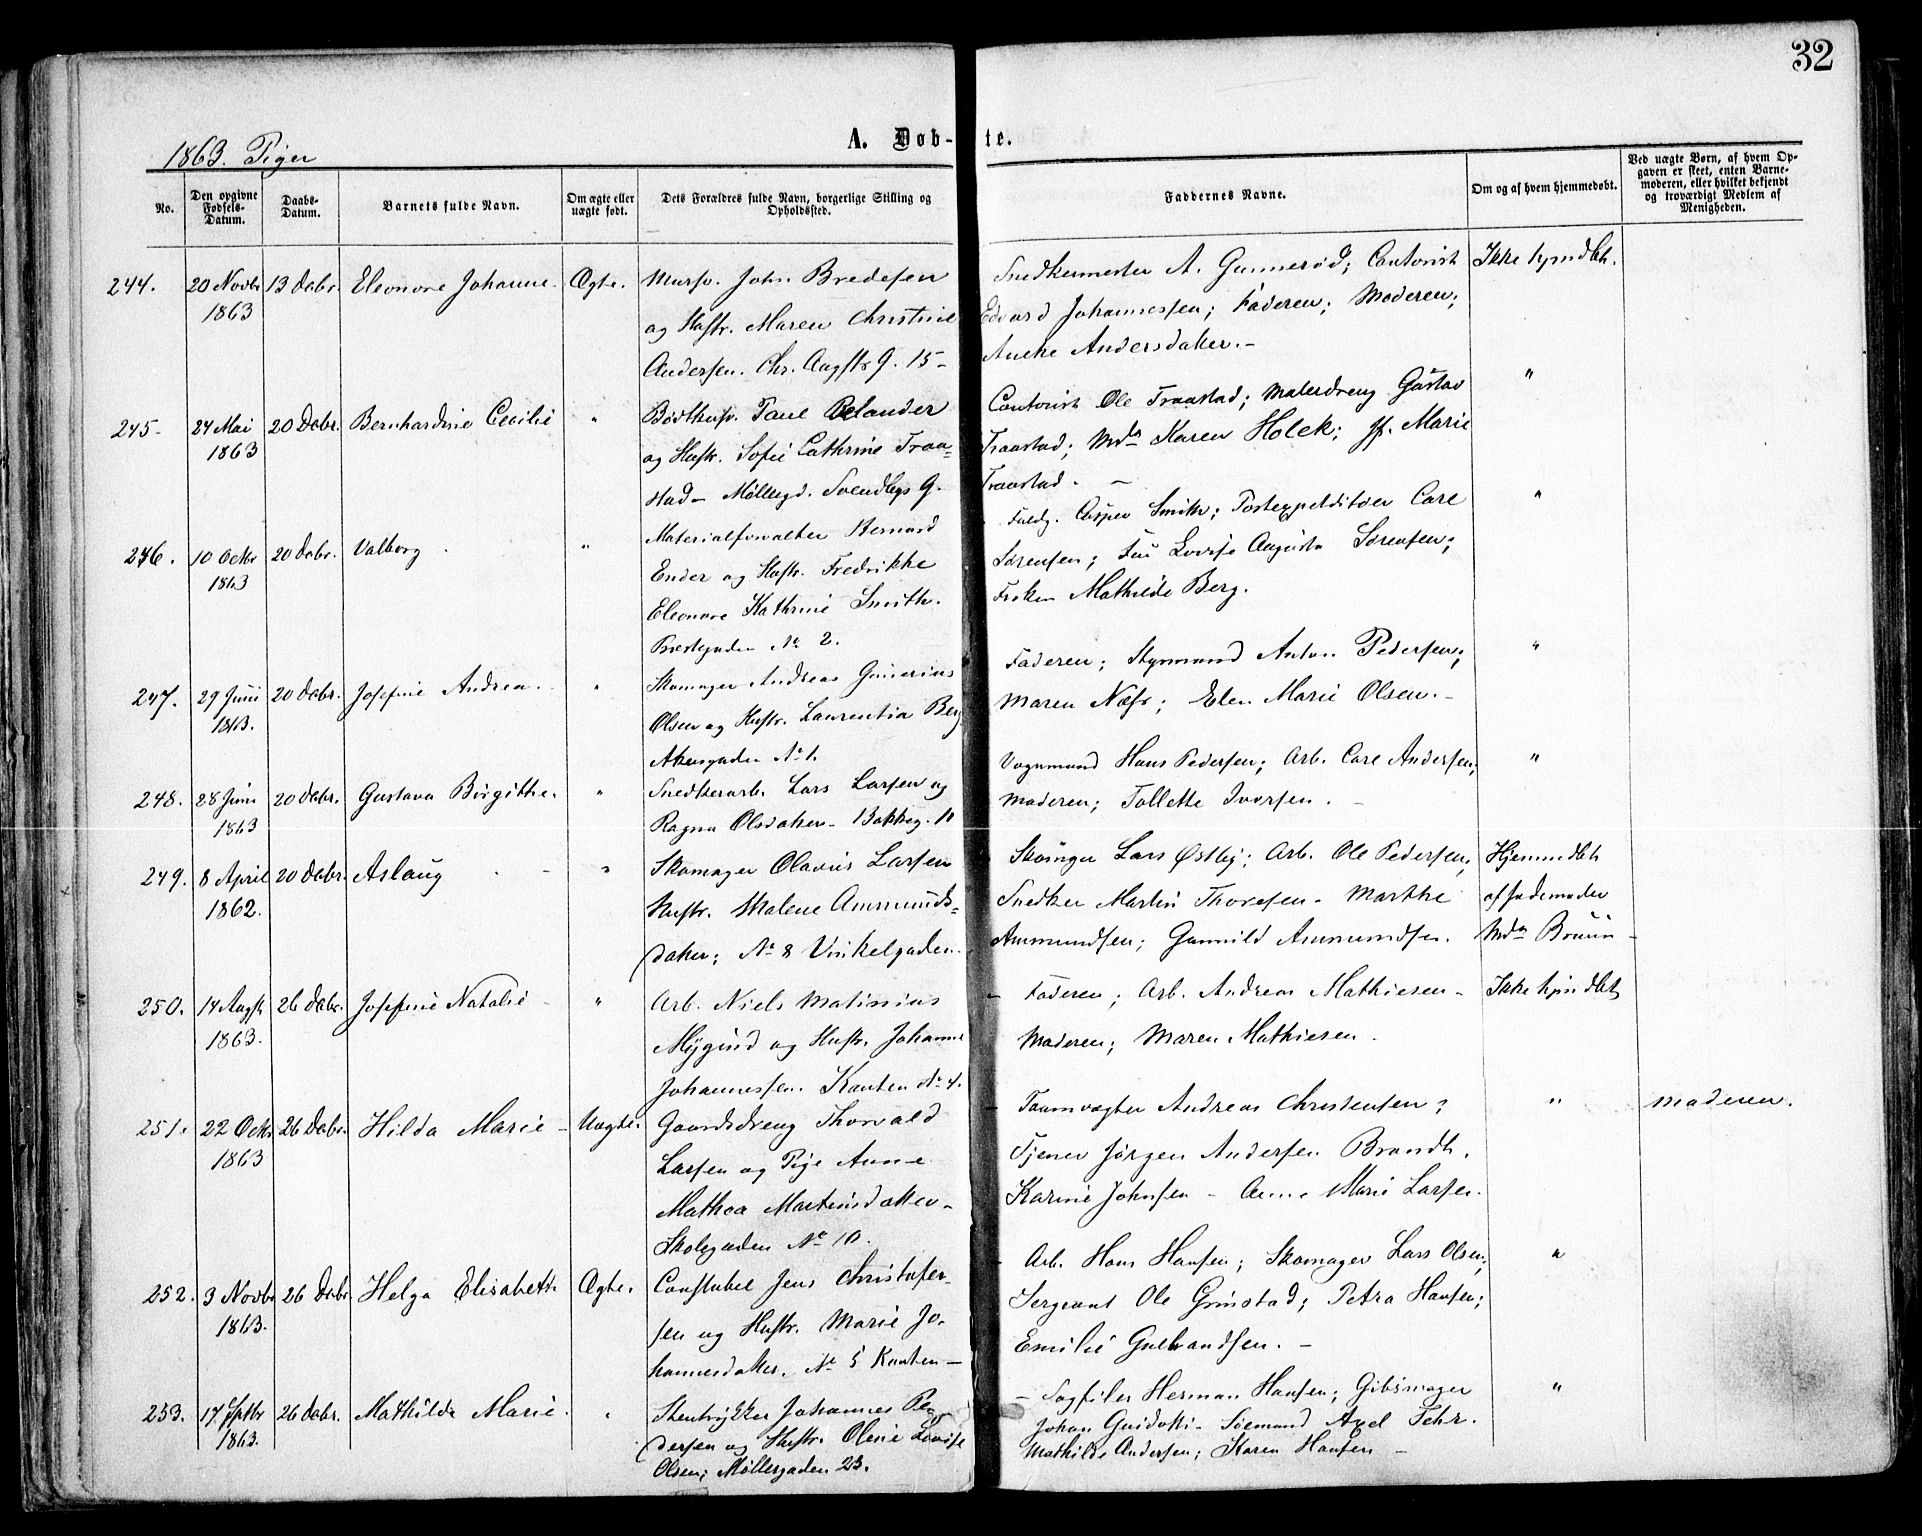 32
1863. Piger
A. Døb-te.
No.
Den opgivne Fødsels-Datum.
Daabs-Datum.
Barnets fulde Navn.
Om ægte eller uægte født.
Dets Forældres fulde Navn, borgerlige Stilling og Opholdssted.
Faddernes Navne.
Om og af hvem hjemmedøbt.
Ved uægte Børn, af hvem Opgaven er skeet, enten Barnemoderen, eller hvilket bekjendt og troværdigt Medlem af Menigheden.
244. 20 Novbr 1863 13 Debr. Eleonore Johanne. Ægte.
Mursv. Joh. Bredesen
og Hustr. Maren Christine
Andersen. Chr. Augsts G. 15-
Snedkermester A. Gunnerød; Contorist
Edvard Johannessen; Faderen; Moderen;
Anne Andersdatter.-
Ikke hjmdbt.
245- 24 Mai 1863 20 Debr. Bernhardine Cecilie "
Bødtkersv. Paul Relander
og Hustr. Sofie Cathrine Traa-
stad- Møllergd. Svendbys G.
Contorist Ole Traastad; Malerdreng Gustav
Traastad; Mda Karen Holck; Jf. Marie
Traastad. -
"
246. 10 Octbr 1863 20 Debr. Valborg "
Materialforvalter Bernard
Ender og Hustr. Fredrikke
Eleonore Kathrine Smith.
Præstegaden No 2.
Fuldm. Casper Smith; Postexpeditior Carl
Sørensen; Fru Lovise Augusta Sørensen;
Frøken Mathilde Berg.
"
247. 29 Juni 1863. 20 Debr. Josefine Andrea. "
Skomager Andreas Gunerius
Olsen og Hustr. Laurentia Berg
Akersgaden No 1.
Faderen; Styrmand Anton Pedersen;
Maren Næss; Elen Marie Olsen.-
"
248. 28 Juni 1863 20 Debr. Gustava Birgithe. "
Snedkerarb. Lars Larsen og
Ragna Olsdatter- Bakkeg. 10
Vognmand Hans Pedersen; Arb. Carl Andersen;
Moderen; Tollette Iversen. -
"
249. 8 April 1862. 20 Debr. Aslaug "
Skomager Olavus Larsen
Hustr. Malene Ammunds-
datter; No 8 Vinkelgaden.
Skomager Lars Østby; Arb. Ole Pedersen;
Snedker Martin Thoresen- Marthe
Ammundsen; Gunnild Ammundsen.
Hjemmedbt
af Jordemoder
Mda Bruun-
250. 14 Augst 1863. 26 Debr. Josefine Natalie "
Arb. Niels Matinius
Mygind og Hustr. Johanne
Johannessen. Kanten No 4.
- Faderen; Arb. Andreas Mathiesen-
Moderen; Maren Mathiesen.
Ikke hjmdbt
251. 22 Octbr 1863 26 Debr. Hilda Marie- Uægte.
Gaardsdreng Thorvald
Larsen og Pige Anne
Mathea Martinsdatter-
Skolegaden No 10.
- Taarnvægter Andreas Christensen;
Tjener Jørgen Andersen Brandt.
Karine Johnsen- Anne Marie Larsen.
"
Moderen.
252. 3 Novbr 1863. 26 Debr. Helga Elisabeth Ægte.
Constabel Jens Christofer-
sen og Hustr. Marie Jo-
hannesdatter. No 5 Kanten-
- Arb. Hans Hansen; Skomager Lars Olsen;
Sergeant Ole Grinstad; Petra Hansen;
Emilie Gulbrandsen.-
"
253. 17 Sptbr 1863. 26 Debr. Mathilde Marie. "
Stentrykker Johannes Pe-
dersen og Hustr. Oline Lovise
Olsen; Møllergaden 23.
- Sagfiler Herman Hansen; Gibsmager
Johan Guidotti- Sømand Axel Fehr.
Mathilde Andersen; Karen Hansen-
"